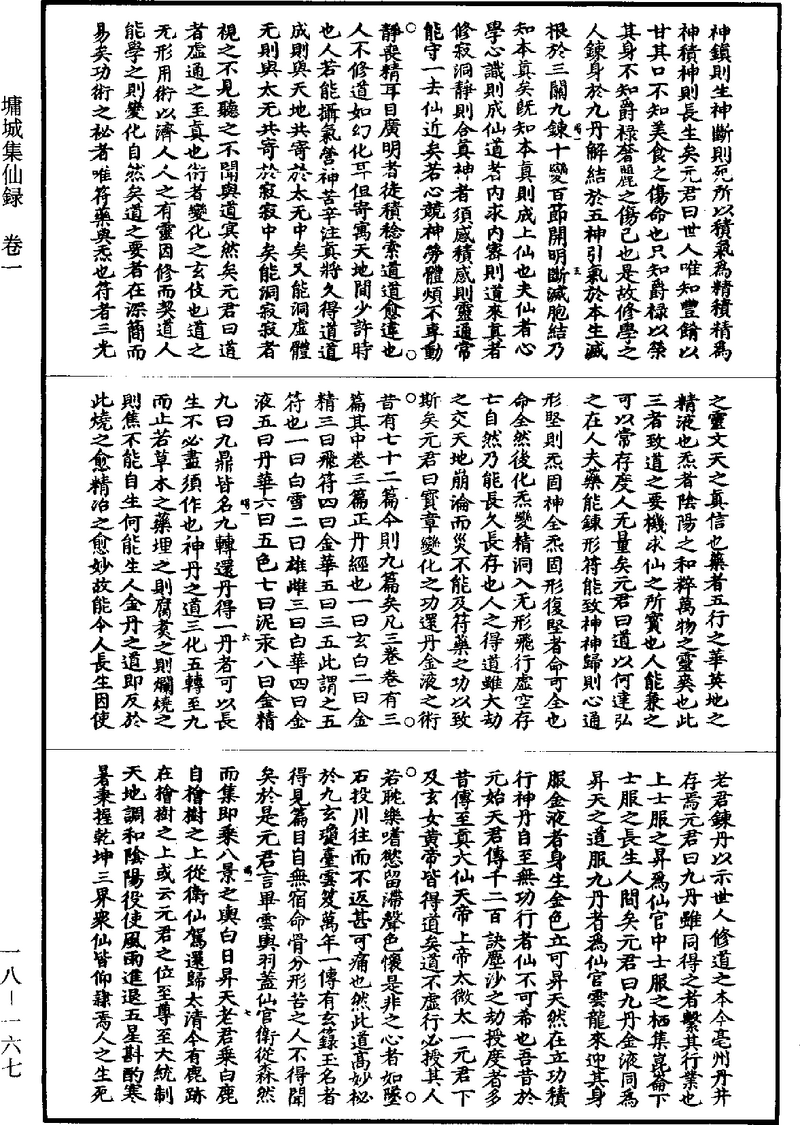 神鎮則生神斷則死所以積氣為精積精為
神積神則長生矣元君曰世人唯知豐餚以
甘其口不知美食之傷命也只知爵祿以榮
其身不知爵祿奢麗之傷己也是故修學之
人鍊身於九丹解結於五神引氣於本生滅
根於三關九鍊十變百節開明斷滅胞結乃
知本真矣既知本真則成上仙也夫仙者心
學心識則成仙道者內求內審則道來真者
修寂洞靜則合真神者須感積感則靈通常
能守一去仙近矣若心競神勞體煩不專動
靜喪精耳目廣明者徒積稔索道道愈遠也
人不修道如幻化耳但寄寓天地間少許時
也人若能攝氣營神苦辛注真將久得道道
成則與天地共寄於太无中矣又能洞虛體
无則與太无共寄於寂寂中矣能洞寂寂者
視之不見聽之不聞與道冥然矣元君曰道
者虛通之至真也術者變化之玄伎也道之
无形用術以濟人人之有靈因修而契道人
能學之則變化自然矣道之要者在深簡而
易矣功術之秘者唯符藥與炁也符者三光
之靈文天之真信也藥者五行之華英地之
精液也炁者陰陽之和粹萬物之靈爽也此
三者致道之要機求仙之所寶也人能兼之
可以常存度人无量矣元君曰道以何達弘
之在人夫藥能鍊形符能致神神歸則心通
形堅則炁固神全炁固形復堅者命可全也
命全然後化炁變精洞入无形飛行虛空存
亡自然乃能長久長存也人之得道雖大劫
之交天地崩淪而災不能及符藥之功以致
斯矣元君曰寶章變化之功還丹金液之術
昔有七十二篇今則九篇矣凡三卷卷有三
篇其中卷三篇正丹經也一曰玄白二曰金
精三曰飛符四曰金華五曰三五此謂之五
符也一曰白雪二曰雄雌三曰白華四曰金
液五曰丹華六曰五色七曰泥汞八曰金精
九曰九鼎皆名九轉還丹得一丹者可以長
生不必盡須作也神丹之道三化五轉至九
而止若草木之藥埋之則腐煑之則爛燒之
則焦不能自生何能生人金丹之道即反於
此燒之愈精冶之愈妙故能令人長生因使
老君鍊丹以示世人修道之本今亳州丹井
存焉元君曰九丹雖同得之者繫其行業也
上士服之昇為仙官中士服之栖集崑崙下
士服之長生人間矣元君曰九丹金液同為
昇天之道服九丹者為仙官雲龍來迎其身
服金液者身生金色立可昇天然在立功積
行神丹自至無功行者仙不可希也吾昔於
元始天君傳千二百訣塵沙之劫授度者多
昔傳至真六仙天帝上帝太微太一元君下
及玄女黃帝皆得道矣道不虛行必授其人
若耽樂嗜慾留滯聲色懷是非之心者如墜
石投川往而不返甚可痛也然此道高妙秘
於九玄瓊臺雲笈萬年一傳有玄籙玉名者
得見篇目自無宿命骨分形苦之人不得聞
矣於是元君言畢雲輿羽蓋仙官衛從森然
而集即乘八景之輿白日昇天老君乘白鹿
自檜樹之上從衛仙駕還歸太清今有鹿跡
在檜樹之上或云元君之位至尊至大統制
天地調和陰陽役使風雨進退五星斟酌寒
暑秉握乾坤三界衆仙皆仰隸焉人之生死
墉城集仙録 卷一
一八－一六七